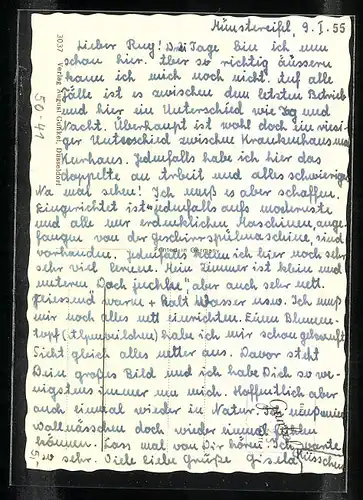 Münstereifel, 9. I. 55
Lieber Rug! Drei Tage bin ich nun
schon hier. Aber so richtig äussern
kann ich mich noch nicht. Auf alle
Fälle ist es zwischen dem letzten Betrieb
und hier ein Unterschied wie Tag und
Nacht. Überhaupt ist wohl doch ein riesi-
ger Unterschied zwischen Krankenhaus und
Kurhaus. Jedenfalls habe ich hier das
doppelte an Arbeit und alles schwieriger
Na mal sehen! Ich muß es aber schaffen.
Eingerichtet ist jedenfalls aufs modernste
und alle nur erdenklichen Maschinen, ange-
fangen von der Geschirrspülmaschine, sind
vorhanden. Jedenfalls kann ich hier noch sehr
sehr viel lernen. Mein Zimmer ist klein und
unterm Dach juchhe, aber auch sehr nett.
fliessend warm + kalt Wasser usw. Ich muß
mir noch alles nett einrichten. Einen Blumen-
topf (Alpenveilchen) habe ich mir schon gekauft
Sieht gleich alles netter aus. Davor steht
Dein großes Bild und ich habe Dich so we-
nigstens immer um mich. Hoffentlich aber
auch einmal wieder in Natur. Ich
doch wieder einmal
können. Lass mal von Dir hören. Ich warte
so sehr. Viele liebe Grüße Gisela
3037 Verlag August Gunkel, Düsseldorf
50-41